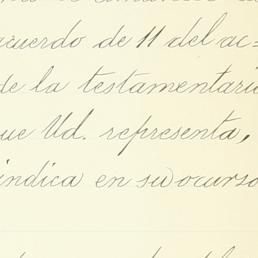 acuerdo de 11 del ac=
de la testamentaria
que Ud. representa,
indica en su ocurso